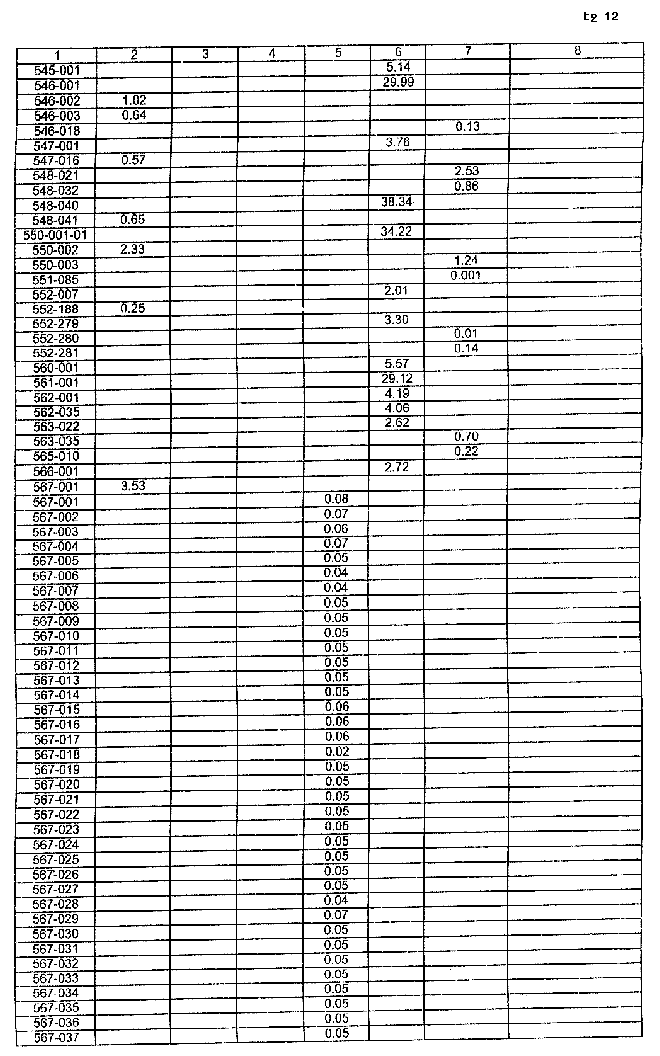 tg 12
1 2 3 4 5 6 7 8
545-001 5.14
546-001 29.99
546-002 1.02
546-003 0.64
546-018 0.13
547-001 3.76
547-016 0.57
548-021 2.53
548-032 0.86
548-040 38.34
548-041 0.65
550-001-01 34.22
550-002 2.33
550-003 1.24
551-085 0.001
552-007 2.01
552-188 0.25
552-279 3.30
552-280 0.01
552-281 0.14
560-001 5.57
561-001 29.12
562-001 4.19
562-035 4.06
563-022 2.62
563-035 0.70
565-010 0.22
566-001 2.72
567-001 3.53
567-001 0.08
567-002 0.07
567-003 0.06
567-004 0.07
567-005 0.05
567-006 0.04
567-007 0.04
567-008 0.05
567-009 0.05
567-010 0.05
567-011 0.05
567-012 0.05
567-013 0.05
567-014 0.05
567-015 0.06
567-016 0.06
567-017 0.06
567-018 0.02
567-019 0.05
567-020 0.05
567-021 0.05
567-022 0.05
567-023 0.05
567-024 0.05
567-025 0.05
567-026 0.05
567-027 0.05
567-028 0.04
567-029 0.07
567-030 0.05
567-031 0.05
567-032 0.05
567-033 0.05
567-034 0.05
567-035 0.05
567-036 0.05
567-037 0.05